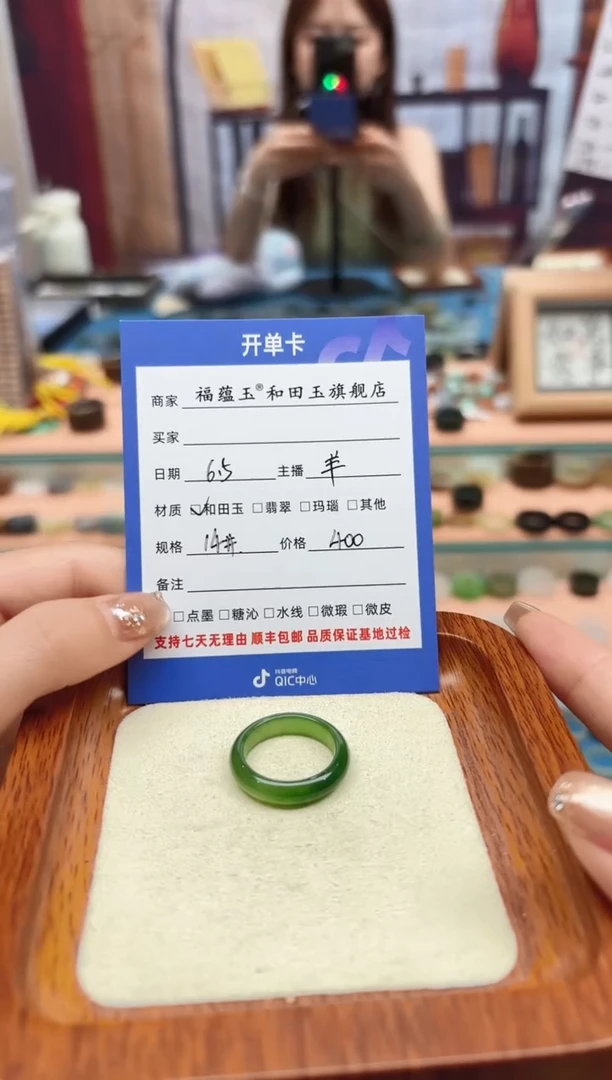 开单卡
商家 福蕴玉®和田玉旗舰店
买家
日期 6.5 主播 羊
材质 ☑和田玉 □翡翠 □玛瑙 □其他
规格 14# 价格 400
备注
□点墨 □糖沁 □水线 □微瑕 □微皮
支持七天无理由 顺丰包邮 品质保证基地过检
抖音电商
QIC中心